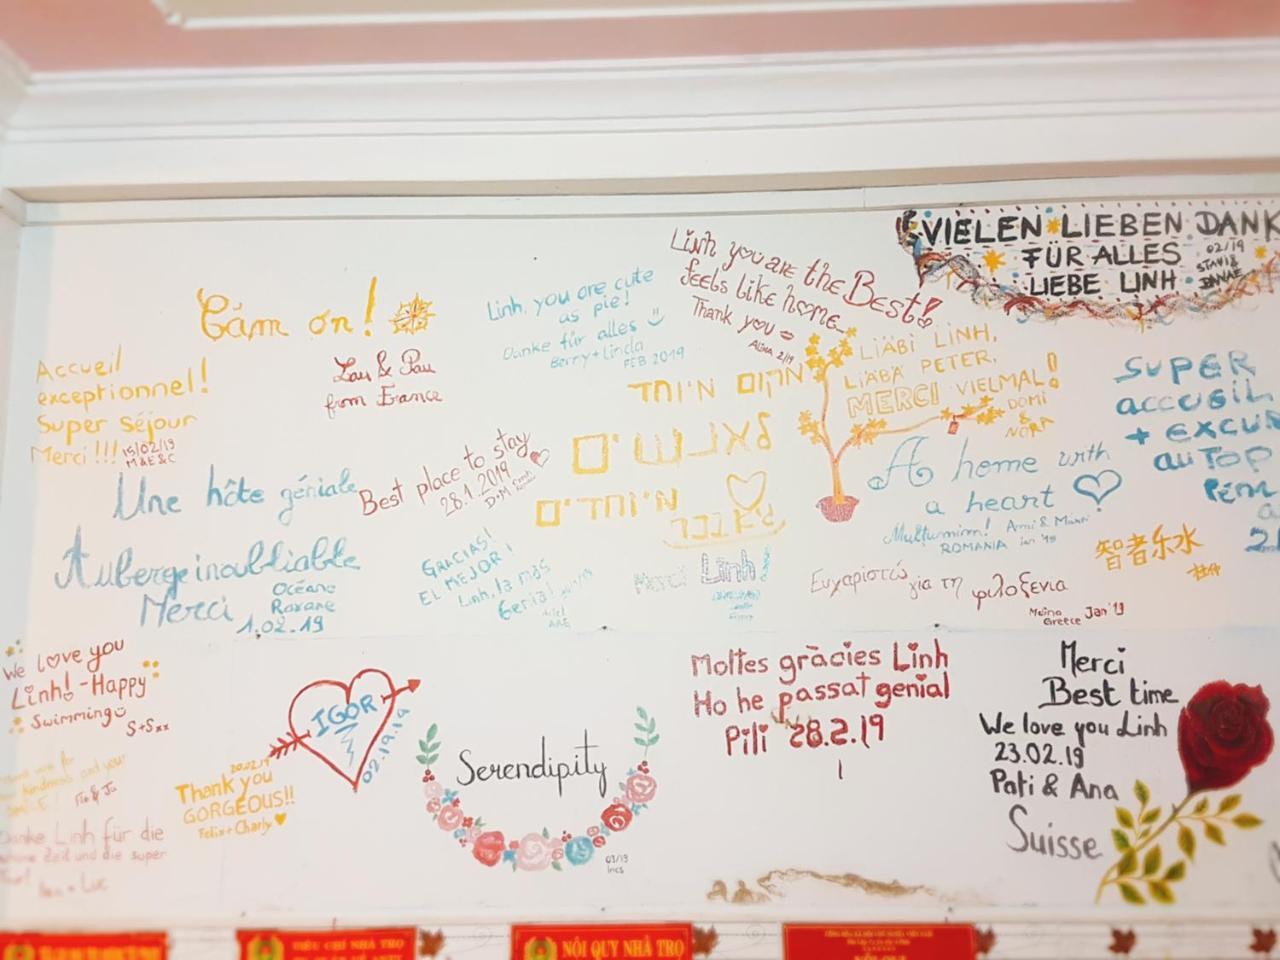 VIELEN LIEBEN DANK
FÜR ALLES
LIEBE LINH
02/19
STAVI &
DANAE
Linh you are the Best!
feels like home
Thank you
Alina 2/19
Linh, you are cute
as pie!
Danke für alles
Berry + Linda
FEB 2019
Cám ơn!
Lau & Pau
from France
Accueil
exceptionnel!
Super séjour
Merci!!! 15/02/19
M & E & C
LIÄBI LINH,
LIÄBÄ PETER,
MERCI VIELMAL!
DOMI
&
NORA
SUPER
ACCUEIL
+ EXCUR
AU TOP
מקום מיוחד
לאנשים
מיוחדים
Best place to stay
28.1.2019
Une hôte géniale
Auberge inoubliable
Merci
Océane
Roxane
1.02.19
GRACIAS!
EL MEJOR!
Linh, la más
Genial
A home with
a heart
Multumim!
ROMANIA Jan '19
智者乐水
Merci Linh!
Ευχαριστώ για τη φιλοξενία
Greece Jan '19
We love you
Linh! - Happy
Swimming
S+Sxx
IGOR
02.19.19
20.02.19
Thank you
GORGEOUS!!
Felix + Charly
kindness and your
Danke Linh für die
Zeit und die super
Luc
Serendipity
03/19
Ines
Moltes gràcies Linh
Ho he passat genial
Pili 28.2.19
Merci
Best time
We love you Linh
23.02.19
Pati & Ana
Suisse
TIÊU CHÍ NHÀ TRỌ
NỘI QUY NHÀ TRỌ